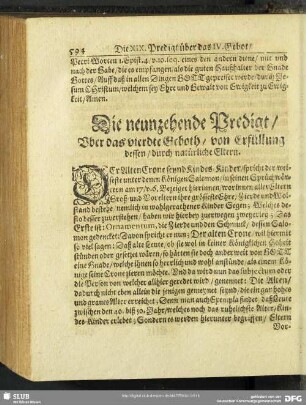 594 Die XIX. Predigt über das IV. Gebot/
Petri Worten 1. Epist. 4. v. 10. seq. eines dem andern diene/ mit und
nach der Gabe/ die es empfangen/ als die guten Haußhalter der Gnade
Gottes/ Auff daß in allen Dingen GOTT gepreiset werde/ durch Je-
sum Christum/ welchem sey Ehre und Gewalt von Ewigkeit zu Ewig-
keit/ Amen.
Die neunzehende Predigt/
Über das vierdte Geboth/ von Erfüllung
dessen/ durch natürliche Eltern.
DEr Alten Crone seynd Kindes-Kinder/ spricht der wei-
seste unter denen Königen Salomon/ in seinen Sprüchwör-
tern am 17/ v. 6. Bezeiget hieriñen/ worinnen aller Eltern
Groß- und Voreltern ihre gröste Ehre/ Zierde und Wol-
stand bestehe/ nemlich in wohlgerathener Kinder Segen. Welches de-
sto besser zu verstehen/ haben wir hierbey zu erwegen zweyerley. Das
Erste ist: Ornamentum, die Zierde und den Schmuck/ dessen Salo-
mon gedencket: Davon spricht er nun: Der Alten Crone/ will hiermit
so viel sagen: Daß alte Leute/ ob sie wol in keiner Königlichen Hoheit
stünden oder gesetzet wären/ so hätten sie doch anderweit von GOTT
eine Gnade/ welche ihnen so herrlich und wohl anstünde/ als einem Kö-
nige seine Crone zieren möchte. Und da wird nun das subjectum oder
die Person von welcher allhier geredet wird/ genennet: Die Alten/
da durch nicht eben allein die jenigen gemeynet seynd/ die ein gar hohes
und graues Alter erreichet. Denn man auch Exempla findet/ daß Leute
zwischen den 40. biß 50. Jahr/ welches noch das ruhelichste Alter/ Kin-
des-Kinder erlebet; Sondern es werden hierunter begriffen/ Eltern
Vor-
SLUB
DFG